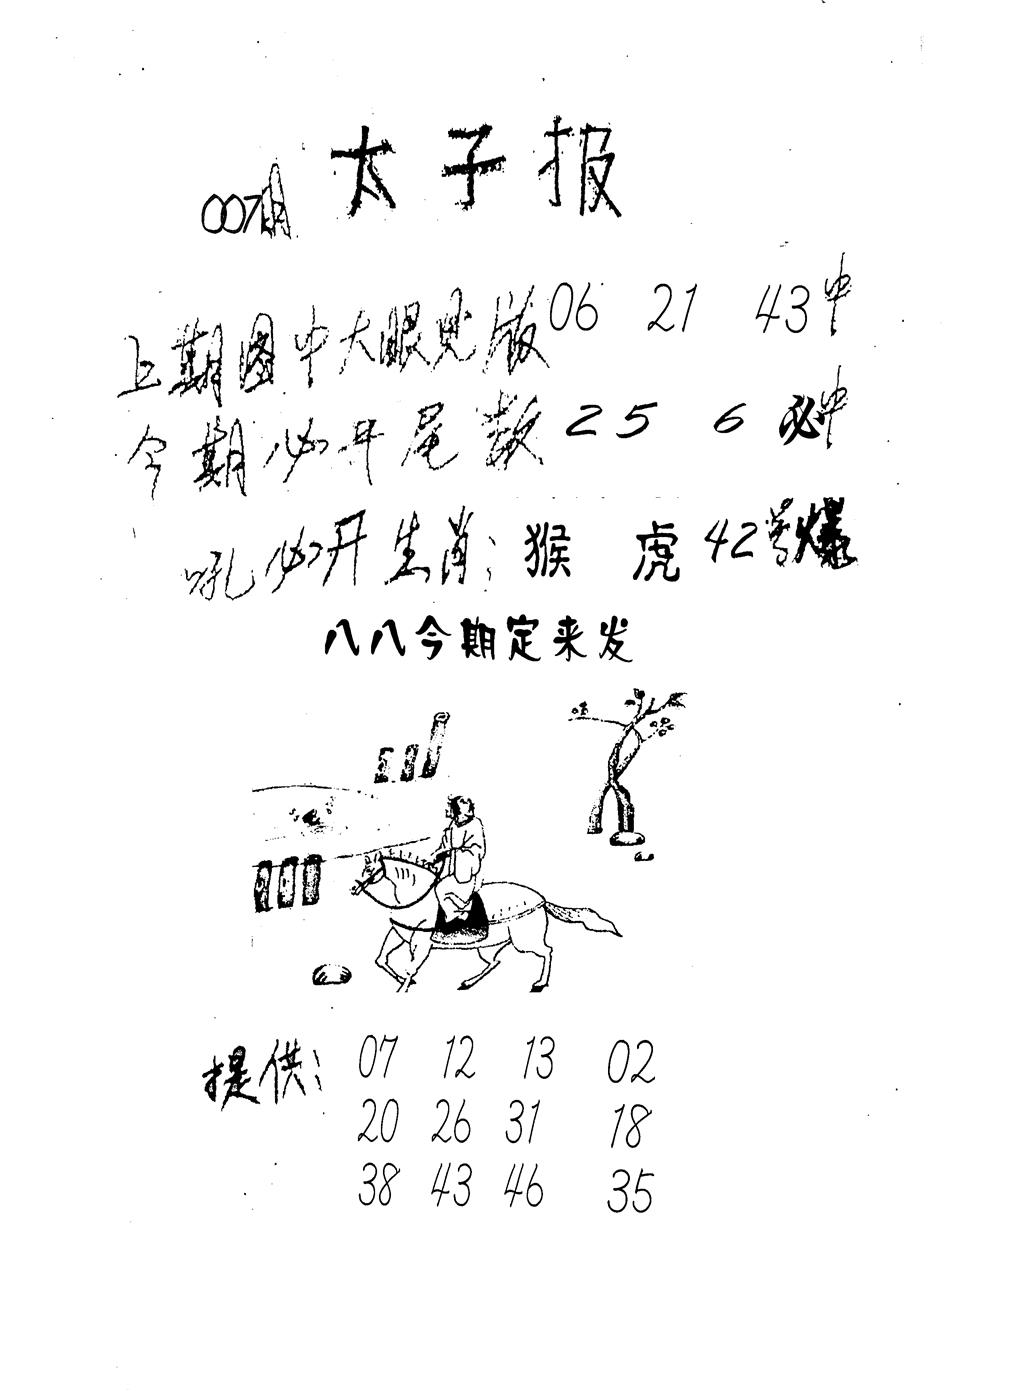 太子报
007期
上期图中大眼见版06 21 43中
今期必开尾数25 6必中
吼必开生肖:猴 虎42号爆
八八今期定来发
提供: 07 12 13 02
20 26 31 18
38 43 46 35